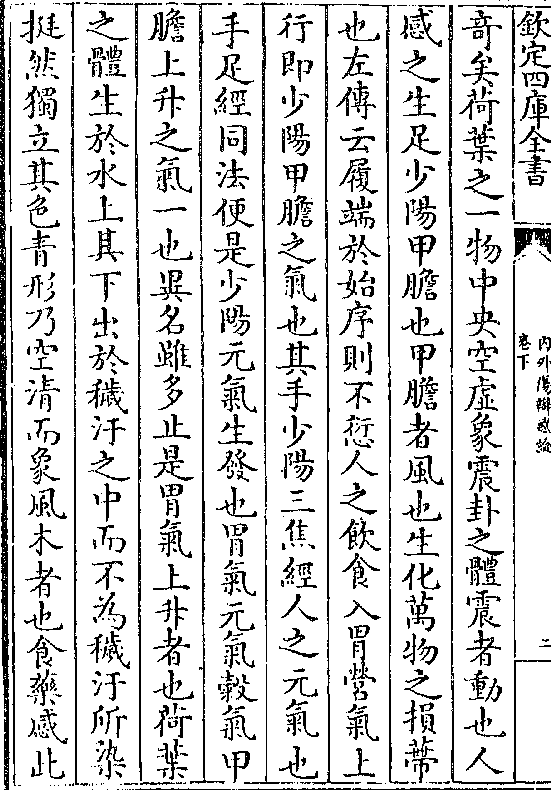 欽定四庫全書
內外傷辯惑論
卷下
二
竒矣荷葉之一物中央空虛象震卦之體震者動也人
感之生足少陽甲膽也甲膽者風也生化萬物之損蔕
也左傳云履端於始序則不愆人之飲食入胃營氣上
行即少陽甲膽之氣也其手少陽三焦經人之元氣也
手足經同法便是少陽元氣生發也胃氣元氣穀氣甲
膽上升之氣一也異名雖多止是胃氣上升者也荷葉
之體生於水上其下出於穢汙之中而不為穢汙所染
挺然獨立其色青形乃空清而象風木者也食藥感此